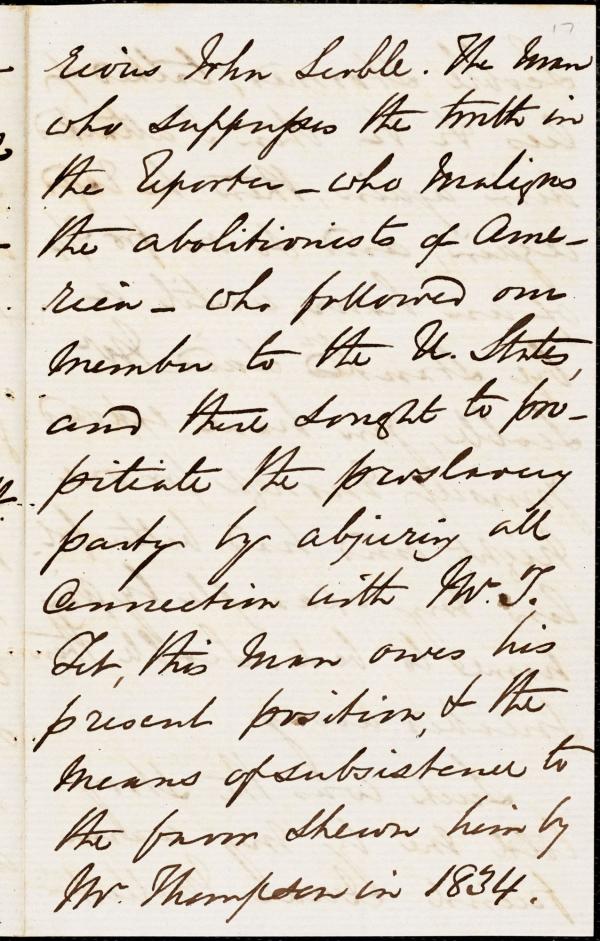 17
John Scoble. The Man
who suppresses the truth in
the Reporter – who Maligns
the abolitionists of Ame-
rica – who followed our
Member to the U. States,
and there sought to pro-
pitiate the proslavery
party by abjuring all
Connection with Mr. T.
Yet, this Man owes his
present position, & the
means of subsistence to
the favor shewn him by
Mr. Thompson in 1834.